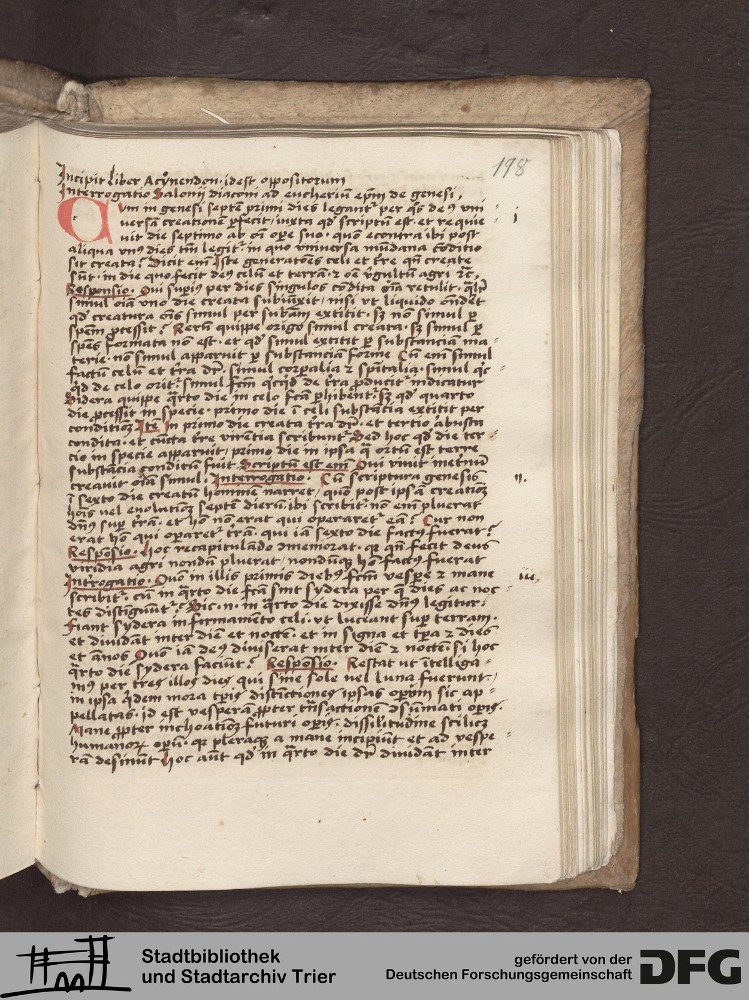 198
Incipit liber Acÿnendon · idest oppositorum
Interrogatio Salonij diaconi ad eucheriũ ep̃m de genesi .
Cum in genesi septẽ primi dies legant᷑ per q̃s deꝰ vni
i
uersã creationẽ ꝑfecit · iuxta qd̃ scriptũ est · et requie
uit die septimo ab om̃ oꝑe suo · quõ econtra ibi post
aliqua vnꝰ dies tm̃ legit᷑ · in quo vniuersa mũdana cõditio
sit creata? Dicit em̃ Iste generatões celi et t̃re qñ create
sũt · in die quo fecit deꝰ celũ et terrã · ⁊ om̃e v̾gultũ agri ⁊c̃ .
Responsio · Qui supiꝰ per dies singulos cõdita om̃ia retulit · q̃lr̃
simul om̃ia vno die creata subiũxit · nisi vt liquido õndẽt
qd̃ creatura om̃s simul per subãm extitit · sꝫ nõ simul ꝑ
spẽm ꝓcessit? Rerũ quippe origo simul creata · sꝫ simul ꝑ
spẽs formata nõ est · et qd̃ simul extitit ꝑ substanciã ma
terie · nõ simul apparuit ꝑ substanciã forme Cũ em̃ simul
factũ celũ et t̃ra dr̃ · simul corꝑalia ⁊ sp̃italia · simul q̃c
q̃d de celo orit᷑ · simul fc̃m q̃cq̃d de t̃ra ꝓducit᷑ indicatur
Sidera quippe q̃rto die in celo fc̃a ꝑhibent᷑ · sꝫ qd̃ quarto
die ꝓcessit in specie · primo die ĩ celi substãcia extitit per
conditionẽ Itẽ In primo die creata t̃ra dr̃ · et tertio arbusta
condita · et cũcta t̃re virẽtia scribunt᷑ Sed hoc qd̃ die ter
cio in specie apparuit · primo die in ipsa q̃ ortũ est terre
substãcia conditũ fuit Scriptũ est em̃ Qui viuit in et̃nũ
creauit om̃ia simul · Interrogatio · Cũ scriptura genesis
ii.
ĩ sexto die creatũ hominẽ narret · quõ post ipsã creationẽ
hoĩs vel euolutionẽ septẽ dierũ · ibi scribit᷑ · nõ em̃ pluerat
dñs suꝑ t̃rã · et hõ nõ erat qui operaret᷑ eã? Cur non
erat hõ qui oꝑaret᷑ t̃rã · qui iã sexto die factꝰ fuerat?
Responsio · Hoc recapitulãdo cõmemorat · qꝫ qñ fecit deus
viridia agri nondũ pluerat · nondũqꝫ hõ factꝰ fuerat
Int̃rogatio · Quõ in illis primis diebꝰ fc̃m vespe ⁊ mane
iii.
scribit᷑ · cũ in q̃rto die fc̃a sint sydera per q̃ dies ac noc
tes distigũut᷑? Sic · n · in q̃rto die dixisse dñs legitur ·
Fiant sydera in firmamẽto celi · vt luceant suꝑ terram ·
et diuidãt inter diẽ et noctẽ · et in signa et tp̃ra ⁊ dies
et ãnos Quõ iam deꝰ diuiserat inter diẽ ⁊ noctẽ si hoc
q̃rto die sydera faciũt? Responsio · Restat vt ĩtelliga
mꝰ per tres illos dies qui sine sole vel luna fuerunt ·
in ipsa q̃dem mora tp̃is distinctiones ipsas operũ sic ap
pellatas · id est vesperã ꝓpter trãsactionẽ cõsũmati oꝑis ·
Mane ꝓpter inchoationẽ futuri oꝑis · dissilitudine scilicꝫ
humanoꝝ oꝑũ · qꝫ pleraqꝫ a mane incipiũt et ad vespe
rã desinũt Hoc aũt qd̃ in q̃rto die dr̃ diuidãt inter
Stadtbibliothek
und Stadtarchiv Trier
gefördert von der
Deutschen Forschungsgemeinschaft
DFG